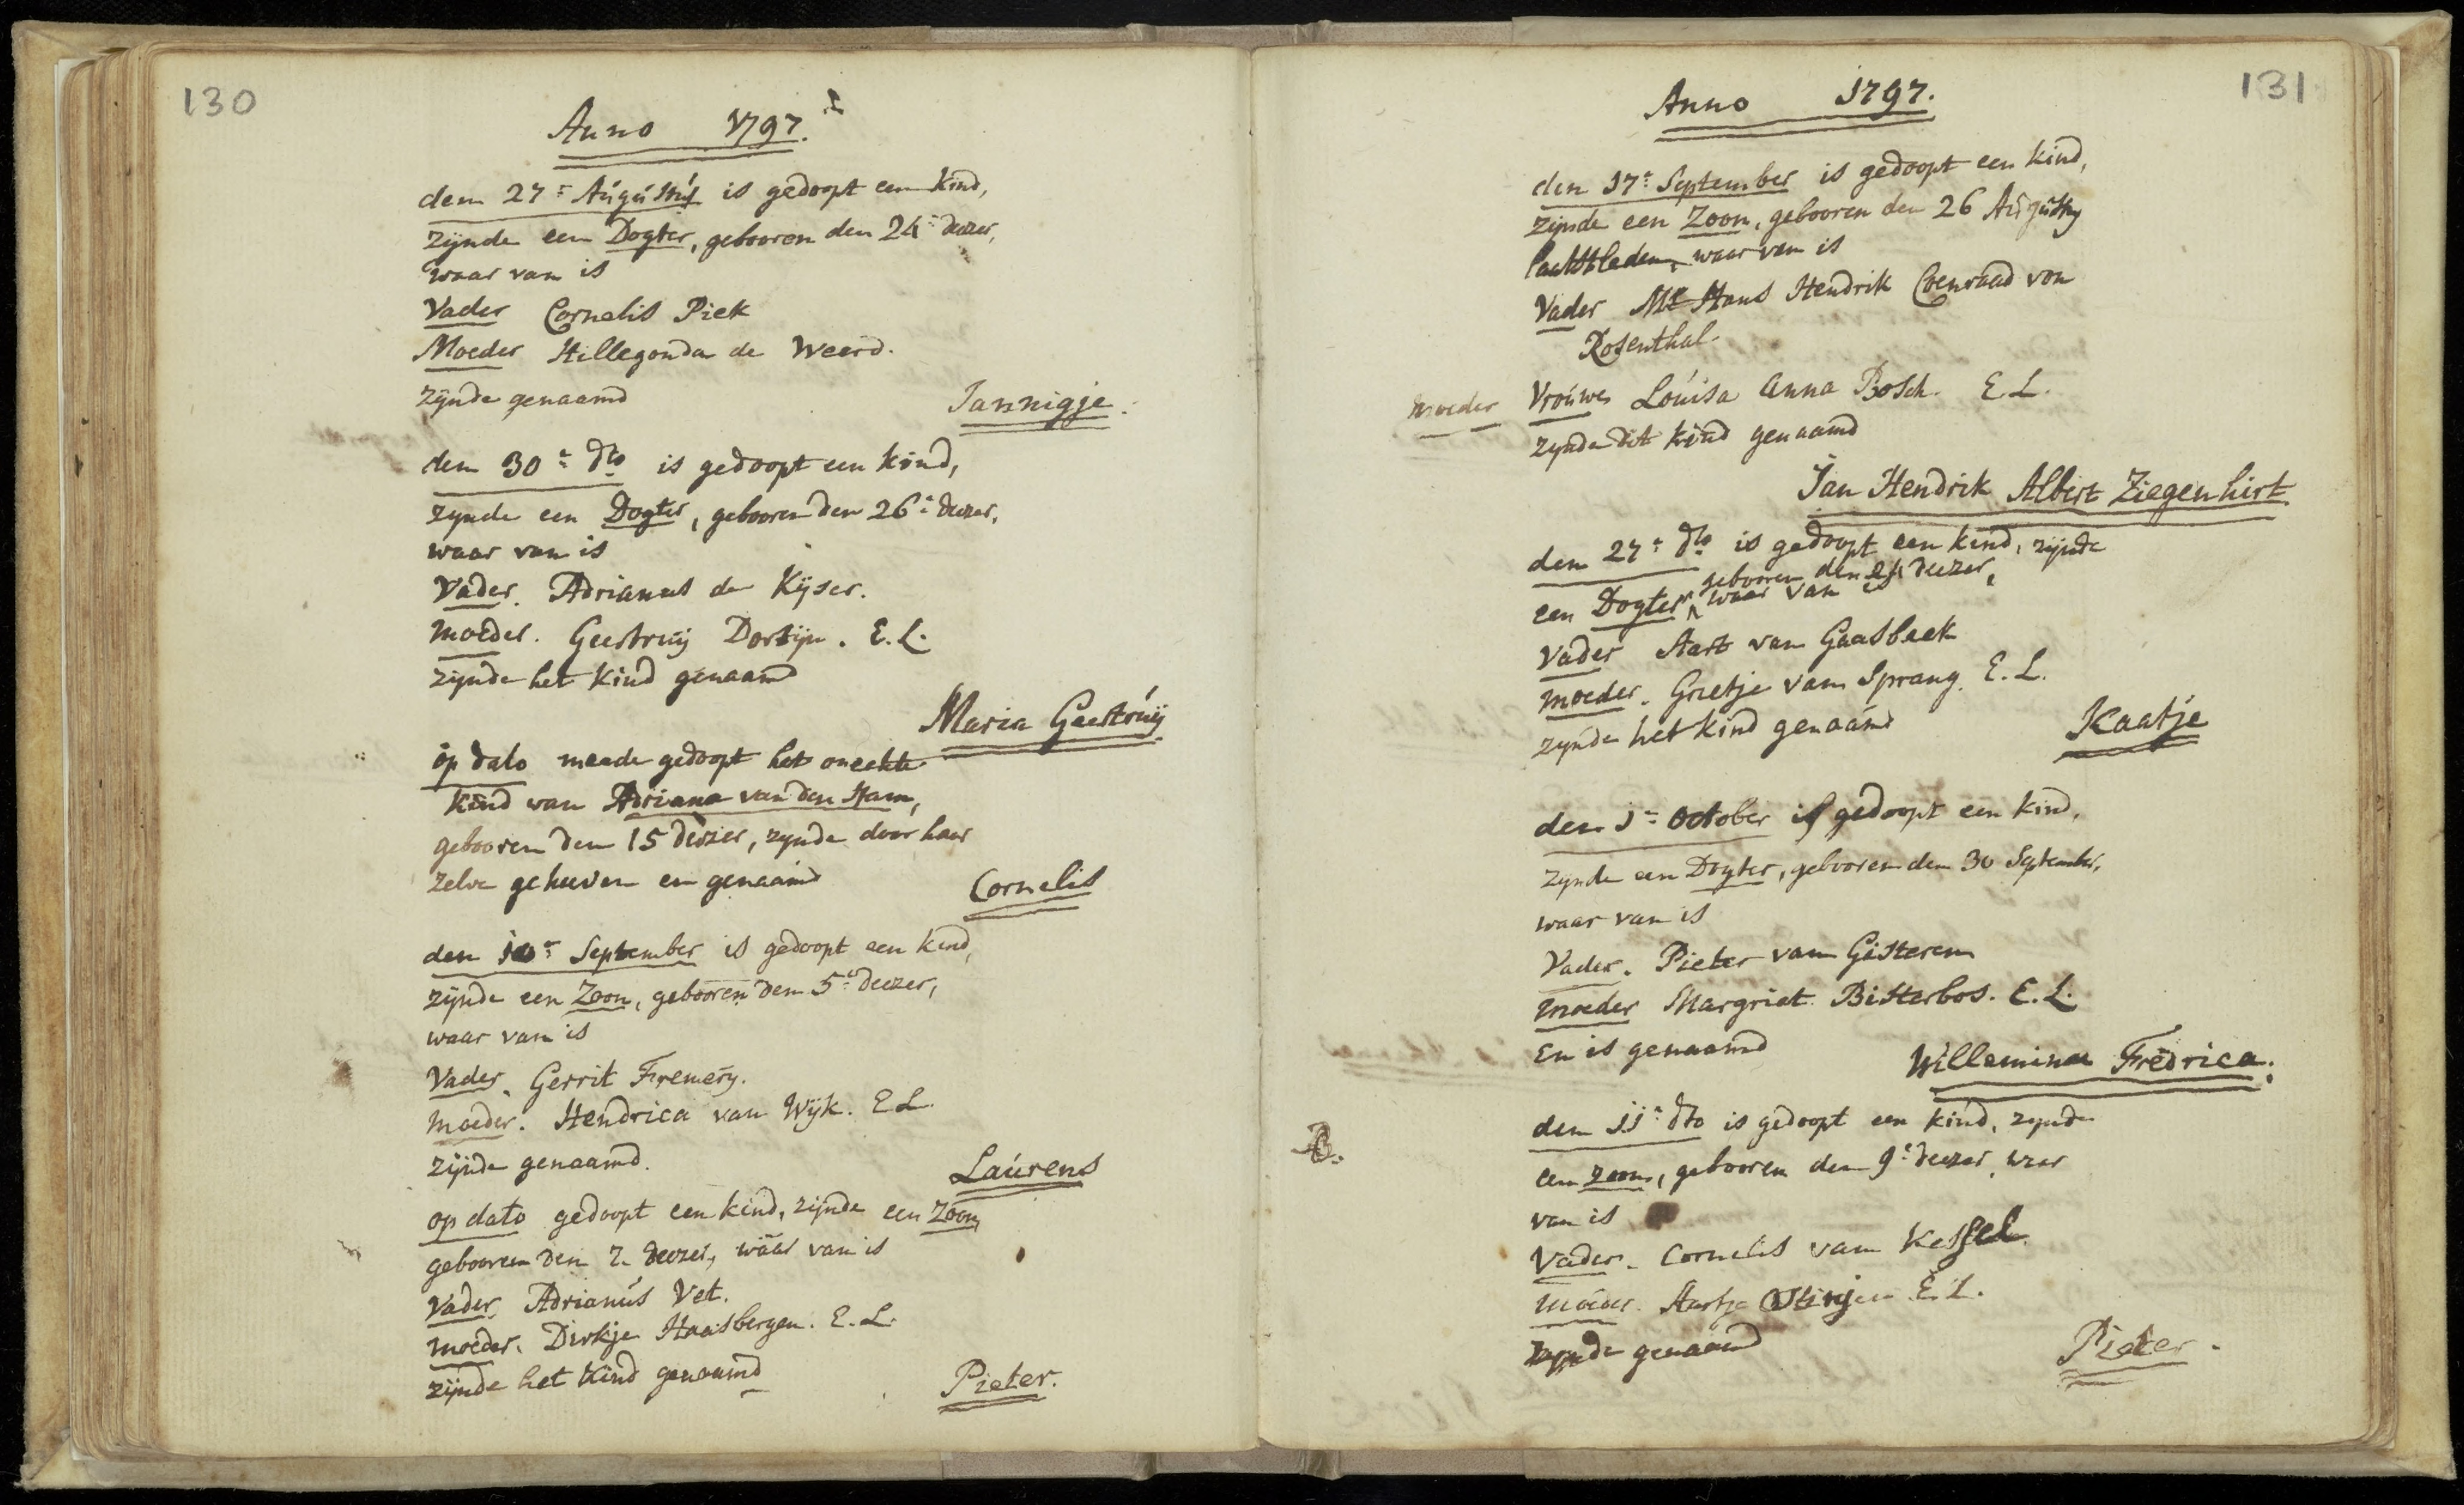 130
Anno 1797.
den 27e Augustus is gedoopt een Kind,
zijnde een Dogter, gebooren den 24e deezer,
waar van is
Vader Cornelis Piek
Moeder Hillegonda de Weerd.
zijnde genaamd Jannigje.
den 30e dto is gedoopt een kind,
zynde een Dogter, gebooren den 26e deezer,
waar van is
Vader. Adrianus de Kijser.
moeder. Geertruij Dortijn. E. L.
zijnde het Kind genaamd
Maria Geertruij
op dato meede gedoopt het onechte
kind van Adriana van den Ham,
gebooren den 15 deezer, zynde door haar
zelve geheeven en genaamd Cornelis
den 10e September is gedoopt een kind,
zijnde een Zoon, gebooren den 5e deezer,
waar van is
Vader. Gerrit Fremery.
moeder. Hendrica van Wijk. E L.
zijnde genaamd. Laurens
op dato gedoopt een kind, zijnde een Zoon,
gebooren den 7. deezer, waar van is
Vader. Adrianus Vet.
moeder. Dirkje Haasbergen. E. L.
zijnde het Kind genaamd Pieter.
131
Anno 1797.
den 17e September is gedoopt een Kind,
zijnde een Zoon, gebooren den 26 Augusty
laatstleden, waar van is
Vader Mr Hans Hendrik Coenraad von
Rosenthal.
moeder Vrouwe Louisa Anna Bosch. E. L.
zynde dit kind genaamd
Jan Hendrik Albert Ziegenhirt
den 27e dto is gedoopt een kind, zijnde
gebooren den 24 deezer,
een Dogter, waar van is
Vader Aart van Gaasbeek
moeder. Grietje van Sprang. E. L.
zynde het kind genaamd Kaatje
den 1e October is gedoopt een kind,
zynde een Dogter, gebooren den 30 September,
waar van is
Vader. Pieter van Gisteren
moeder Margriet Bitterbos. E. L.
En is genaamd Willemina Fredrica.
den 11e dto is gedoopt een kind, zynde
een zoon, gebooren den 9e deezer, waar
van is
Vader. Cornelis van Kessel.
moeder. Aartje E. L.
zynde genaamd Pieter.